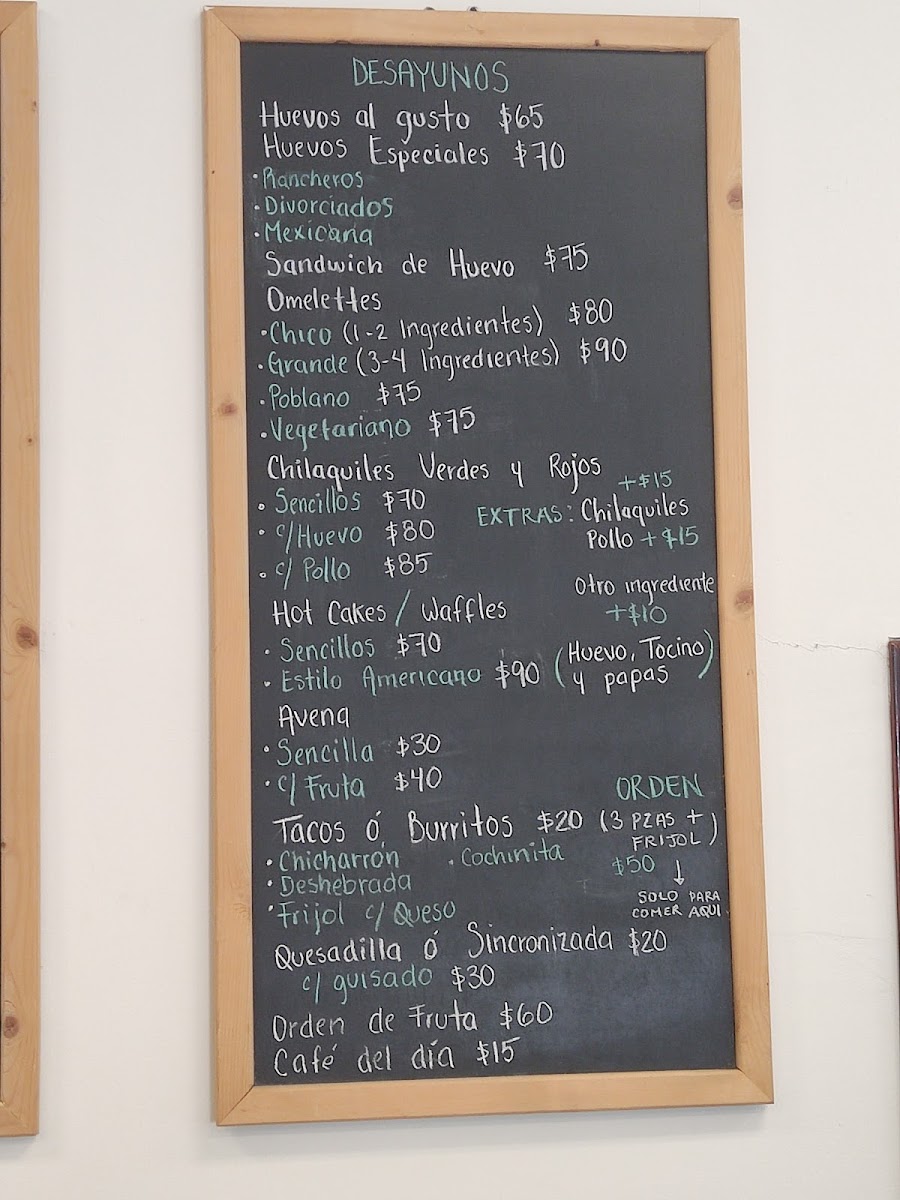 DESAYUNOS
Huevos al gusto $65
Huevos Especiales $70
·Rancheros
·Divorciados
·Mexicana
Sandwich de Huevo $75
Omelettes
·Chico (1-2 Ingredientes) $80
·Grande (3-4 Ingredientes) $90
·Poblano $75
·Vegetariano $75
Chilaquiles Verdes y Rojos
· Sencillos $70
· c/Huevo $80
· c/ Pollo $85
+$15
EXTRAS: Chilaquiles
Pollo +$15
Otro ingrediente
+$10
Hot Cakes / Waffles
· Sencillos $70
· Estilo Americano $90 (Huevo, Tocino y papas)
Avena
·Sencilla $30
·c/Fruta $40
ORDEN
Tacos ó Burritos $20 (3 PZAS + FRIJOL)
·Chicharrón ·Cochinita $50
·Deshebrada
·Frijol c/Queso
SOLO PARA
COMER AQUI
Quesadilla ó Sincronizada $20
c/ guisado $30
Orden de Fruta $60
Café del día $15